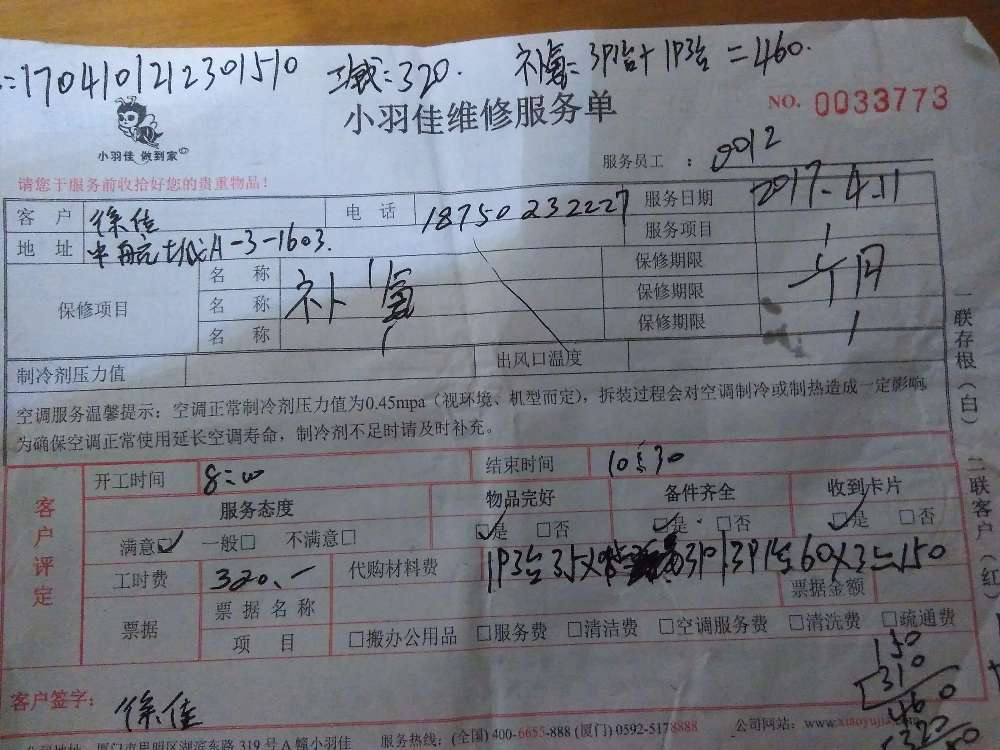 :1704101212301510 工减:320. 补氟:3P1台+1P3台=460.
小羽佳维修服务单
NO. 0033773
小羽佳 做到家
服务员工 : 0012
请您于服务前收拾好您的贵重物品!
客户 徐佳 电话 18750232227 服务日期 2017-4.11
地址 中航城A-3-1603. 服务项目
保修项目 名称 保修期限
名称 补氟 保修期限 一个月
名称 保修期限
制冷剂压力值 出风口温度
空调服务温馨提示:空调正常制冷剂压力值为0.45mpa(视环境、机型而定),拆装过程会对空调制冷或制热造成一定影响
为确保空调正常使用延长空调寿命,制冷剂不足时请及时补充。
一联存根(白) 二联客户(红)
客户评定
开工时间 8:00 结束时间 10:30
服务态度 物品完好 备件齐全 收到卡片
满意☑ 一般□ 不满意□ ☑是 □否 ☑是 □否 ☑是 □否
工时费 320.- 代购材料费 1P3台35X 310 3P1台60X3=150
票据 票据名称 票据金额
项目 □搬办公用品 □服务费 □清洁费 □空调服务费 □清洗费 □疏通费
150
310
460
320
客户签字: 徐佳
公司地址:厦门市思明区湖滨东路319号A幢小羽佳 服务热线:(全国)400-6655-888(厦门)0592-5178888 公司网站:www.xiaoyujia.com